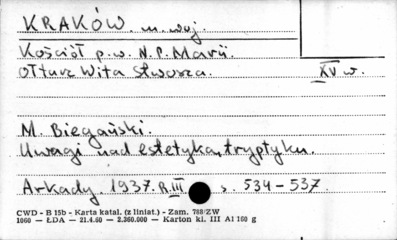 KRAKÓW. m. woj.
Kościół p.w. N.P. Marii.
Ołtarz Wita Stwosza. XV w.
M. Biegański.
Uwagi nad estetyką tryptyku.
Arkady. 1937. R.III s. 534-537.
CWD - B 15b - Karta katal. (z liniat.) - Zam. 788/ZW
1060 — ŁDA — 21.4.60 — 2.360.000 — Karton kl. III A1 160 g